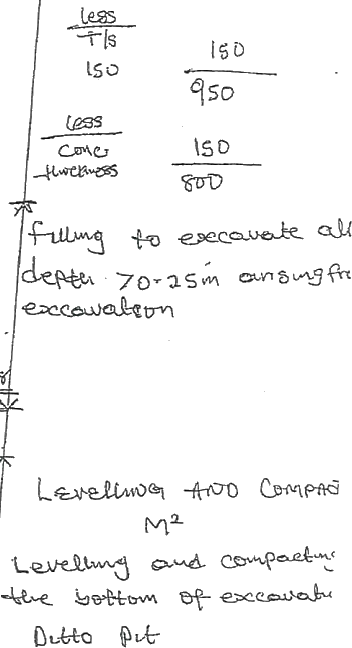 less
T/S
150 150
950
less
Conc 150
thickness 800
filling to excavate all
depth 70.25m arising fr
excavation
Levelling AND COMPAC
M²
Levelling and compacting
the bottom of excavate
Ditto Pit